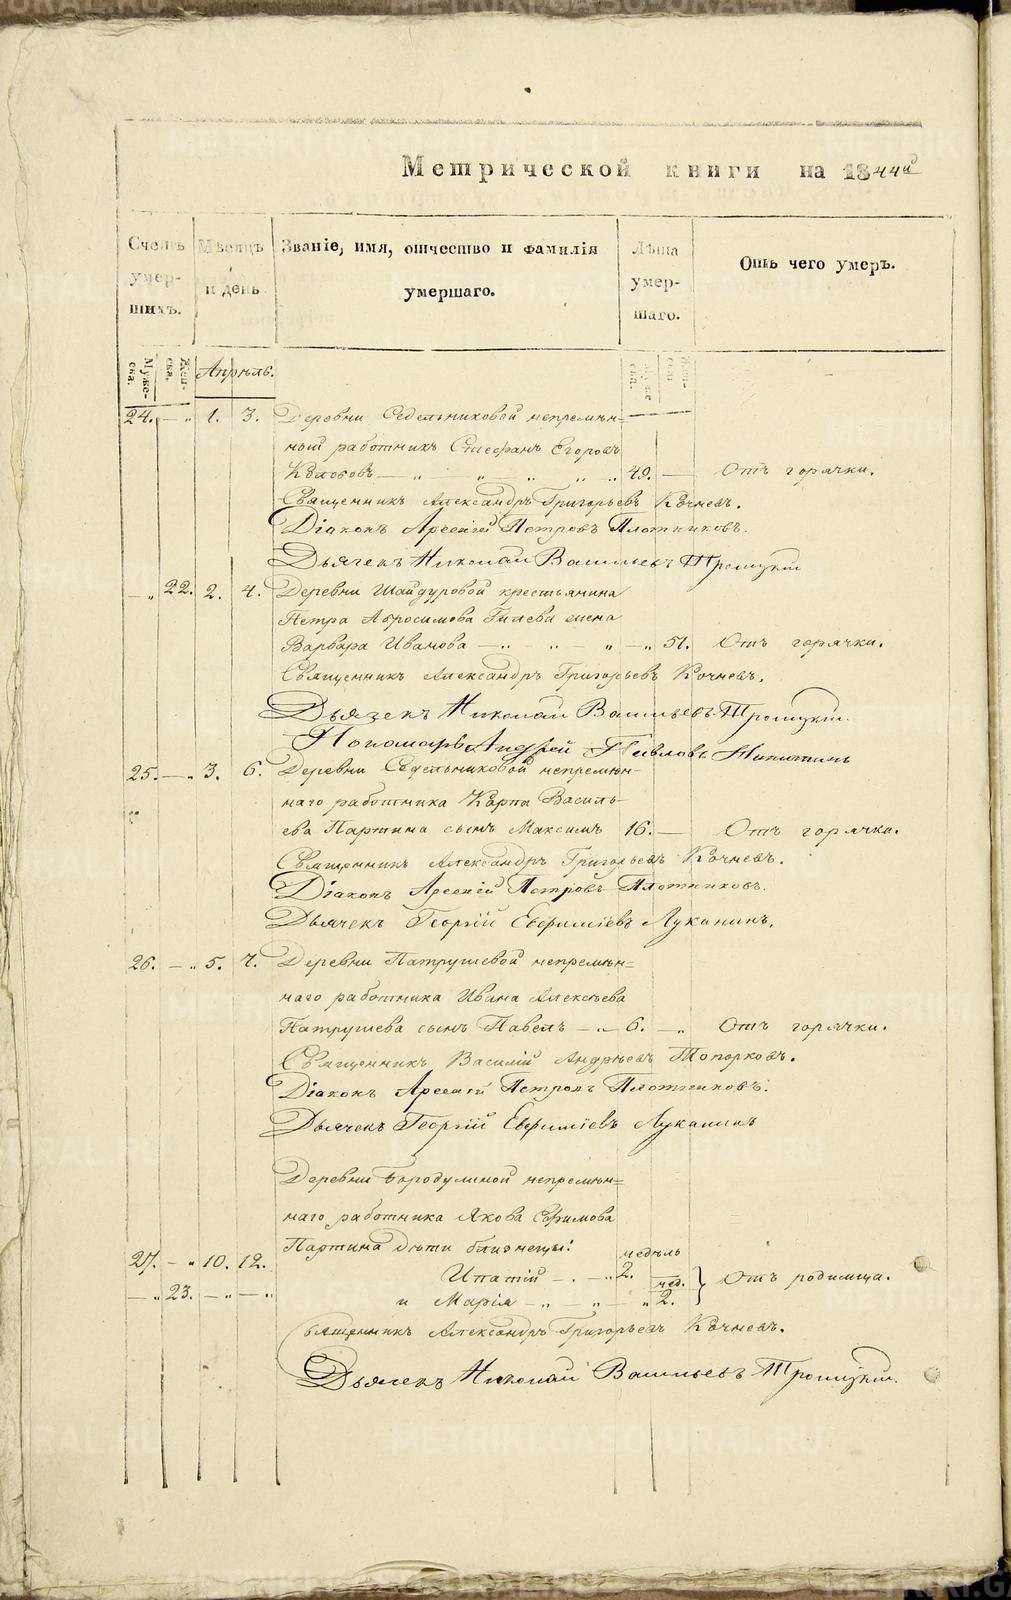 Метрической книги на 1844й
Счетъ умершихъ.
Мѣсяцъ и день
Званіе, имя, отчество и фамилія умершаго.
Лѣта умершаго.
Отъ чего умеръ.
Мужеска. Женска.
Апрѣль.
24. — „ 1. 3. Деревни Седельниковой непремѣн=
ный работникъ Стефанъ Егоровъ
Колобовъ — „ „ — „ „ — „ 49. — Отъ горячки.
Священникъ Александръ Григорьевъ Кочневъ.
Діаконъ Арсеній Петровъ Плотниковъ.
Дьячекъ Николай Васильевъ Троицкій
— „ 22. 2. 4. Деревни Шайдуровой крестьянина
Петра Абросимова Гилева жена
Варвара Иванова — „ — „ — „ — „ 51. Отъ горячки.
Священникъ Александръ Григорьевъ Кочневъ.
Дьячекъ Николай Васильевъ Троицкій.
Пономарь Андрей Павловъ Никитинъ
25. — „ 3. 6. Деревни Седельниковой непремѣн-
наго работника Карпа Василь-
ева Партина сынъ Максимъ 16. — Отъ горячки.
Священникъ Александръ Григорьевъ Кочневъ.
Діаконъ Арсеній Петровъ Плотниковъ.
Дьячекъ Георгій Евфиміевъ Луканинъ.
26. — „ 5. 7. Деревни Патрушевой непремѣн=
наго работника Ивана Алексѣева
Патрушева сынъ Павелъ — „ — 6. — „ Отъ горячки.
Священникъ Василій Андрѣевъ Топорковъ.
Діаконъ Арсеній Петровъ Плотниковъ.
Дьячекъ Георгій Евфиміевъ Луканинъ
Деревни Бородулиной непремѣн=
наго работника Якова Ефимова
Партина дѣти близнецы:
27. — „ 10. 12. Ипатій — . — „ недѣль 2. Отъ родимца.
— „ 23. — „ — „ и Марія — „ — „ — „ нед. 2.
Священникъ Александръ Григорьевъ Кочневъ.
Дьячекъ Николай Васильевъ Троицкій.
METRIKI.GASO-URAL.RU